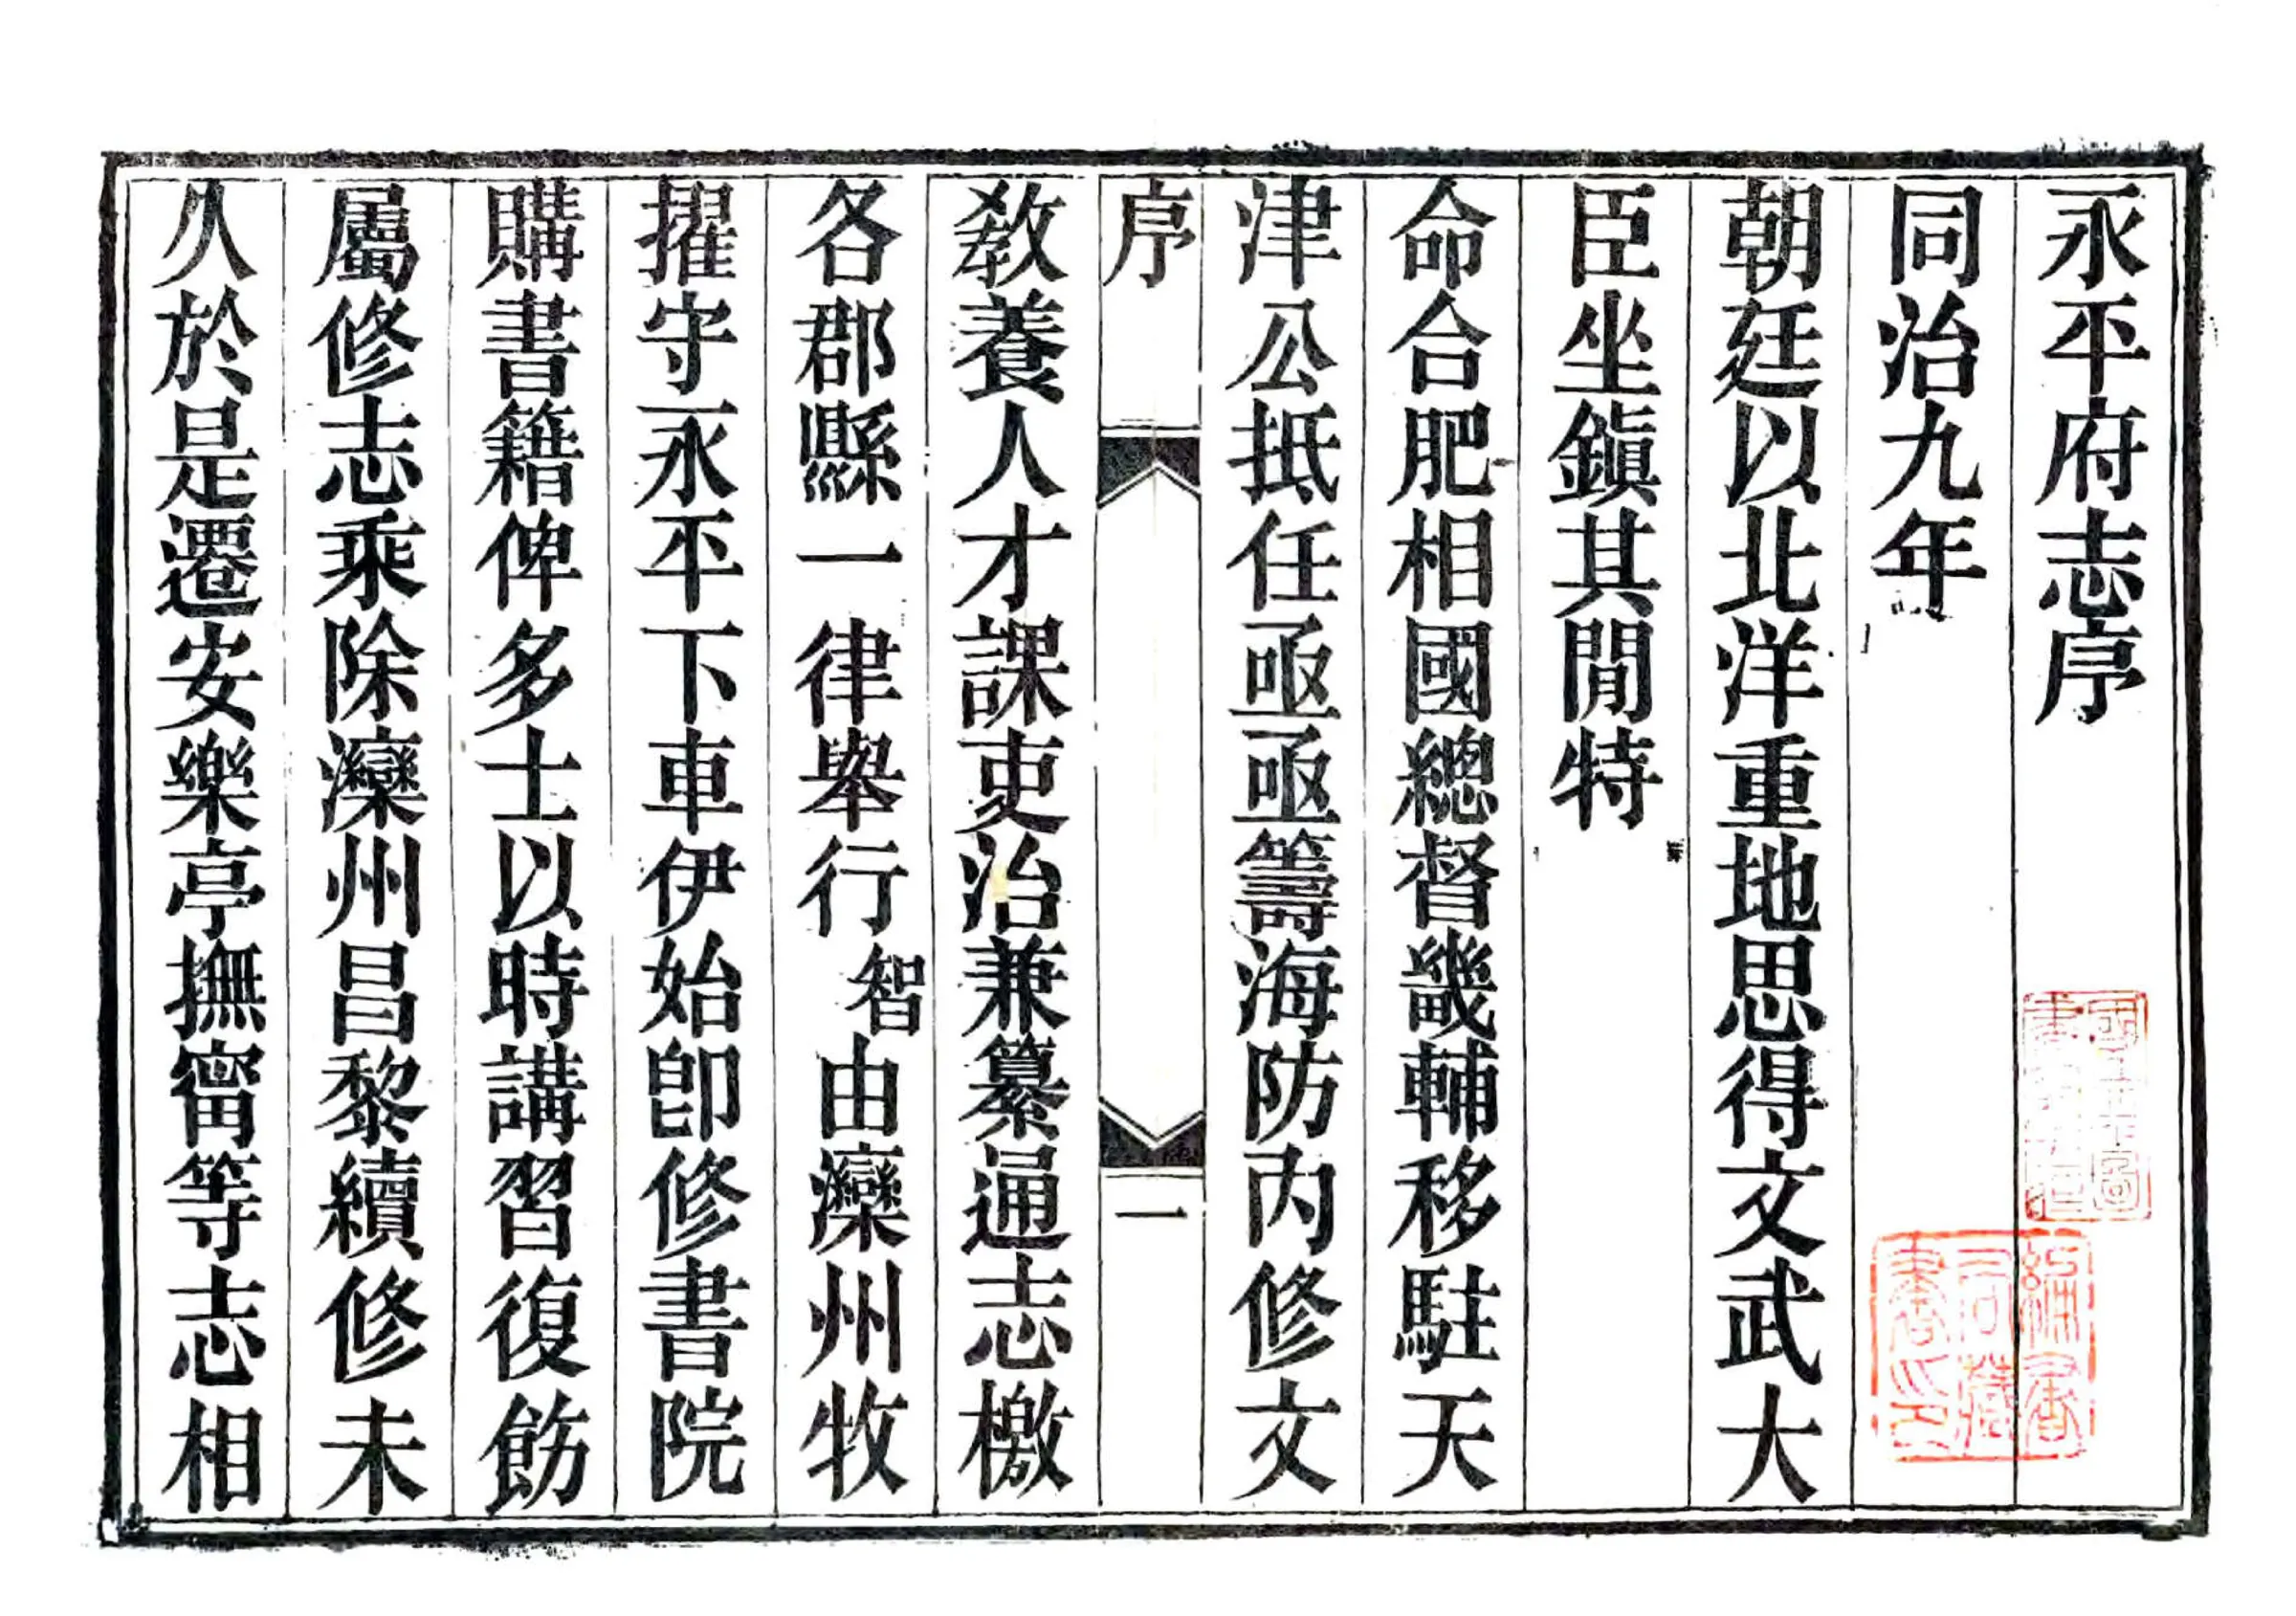 永平府志序
同治九年
朝廷以北洋重地思得文武大
臣坐鎭其閒特
命合肥相國總督畿輔移駐天
津公抵任亟亟籌海防内修文
序
一
敎養人才課吏治兼纂通志檄
各郡縣一律舉行智由灤州牧
擢守永平下車伊始卽修書院
購書籍俾多士以時講習復飭
屬修志乘除灤州昌黎續修未
久於是遷安樂亭撫甯等志相